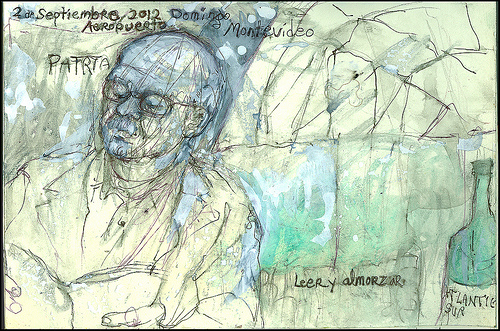 2 de Septiembre, 2012 Domingo
Aeropuerto Montevideo
PATRIA
Leer y almorzar
ATLANTIC
SUR